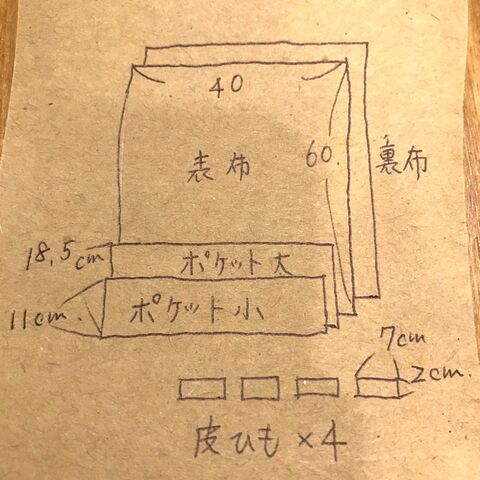 40
表布
60.
裏布
18.5cm
ポケット大
11cm.
ポケット小
7cm
2cm.
皮ひも×4